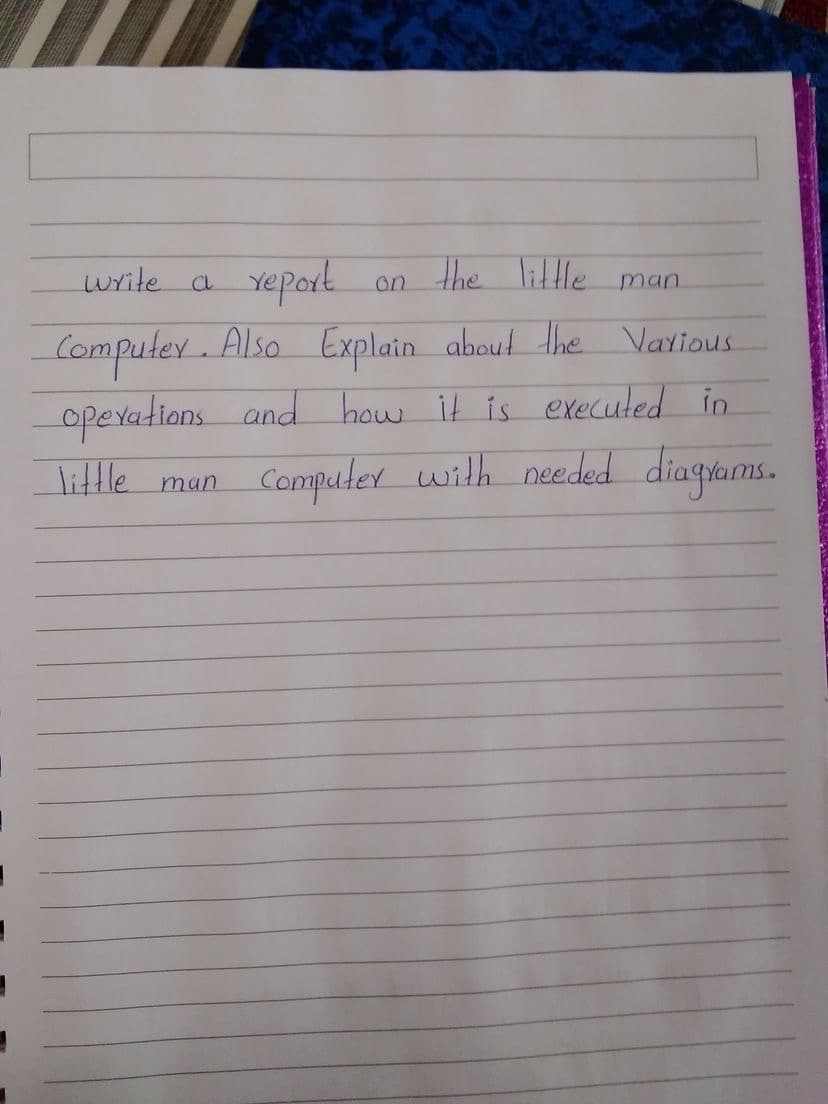 write a report on the little man
Computer. Also Explain about the Various
operations and how it is executed in
little man Computer with needed diagrams.